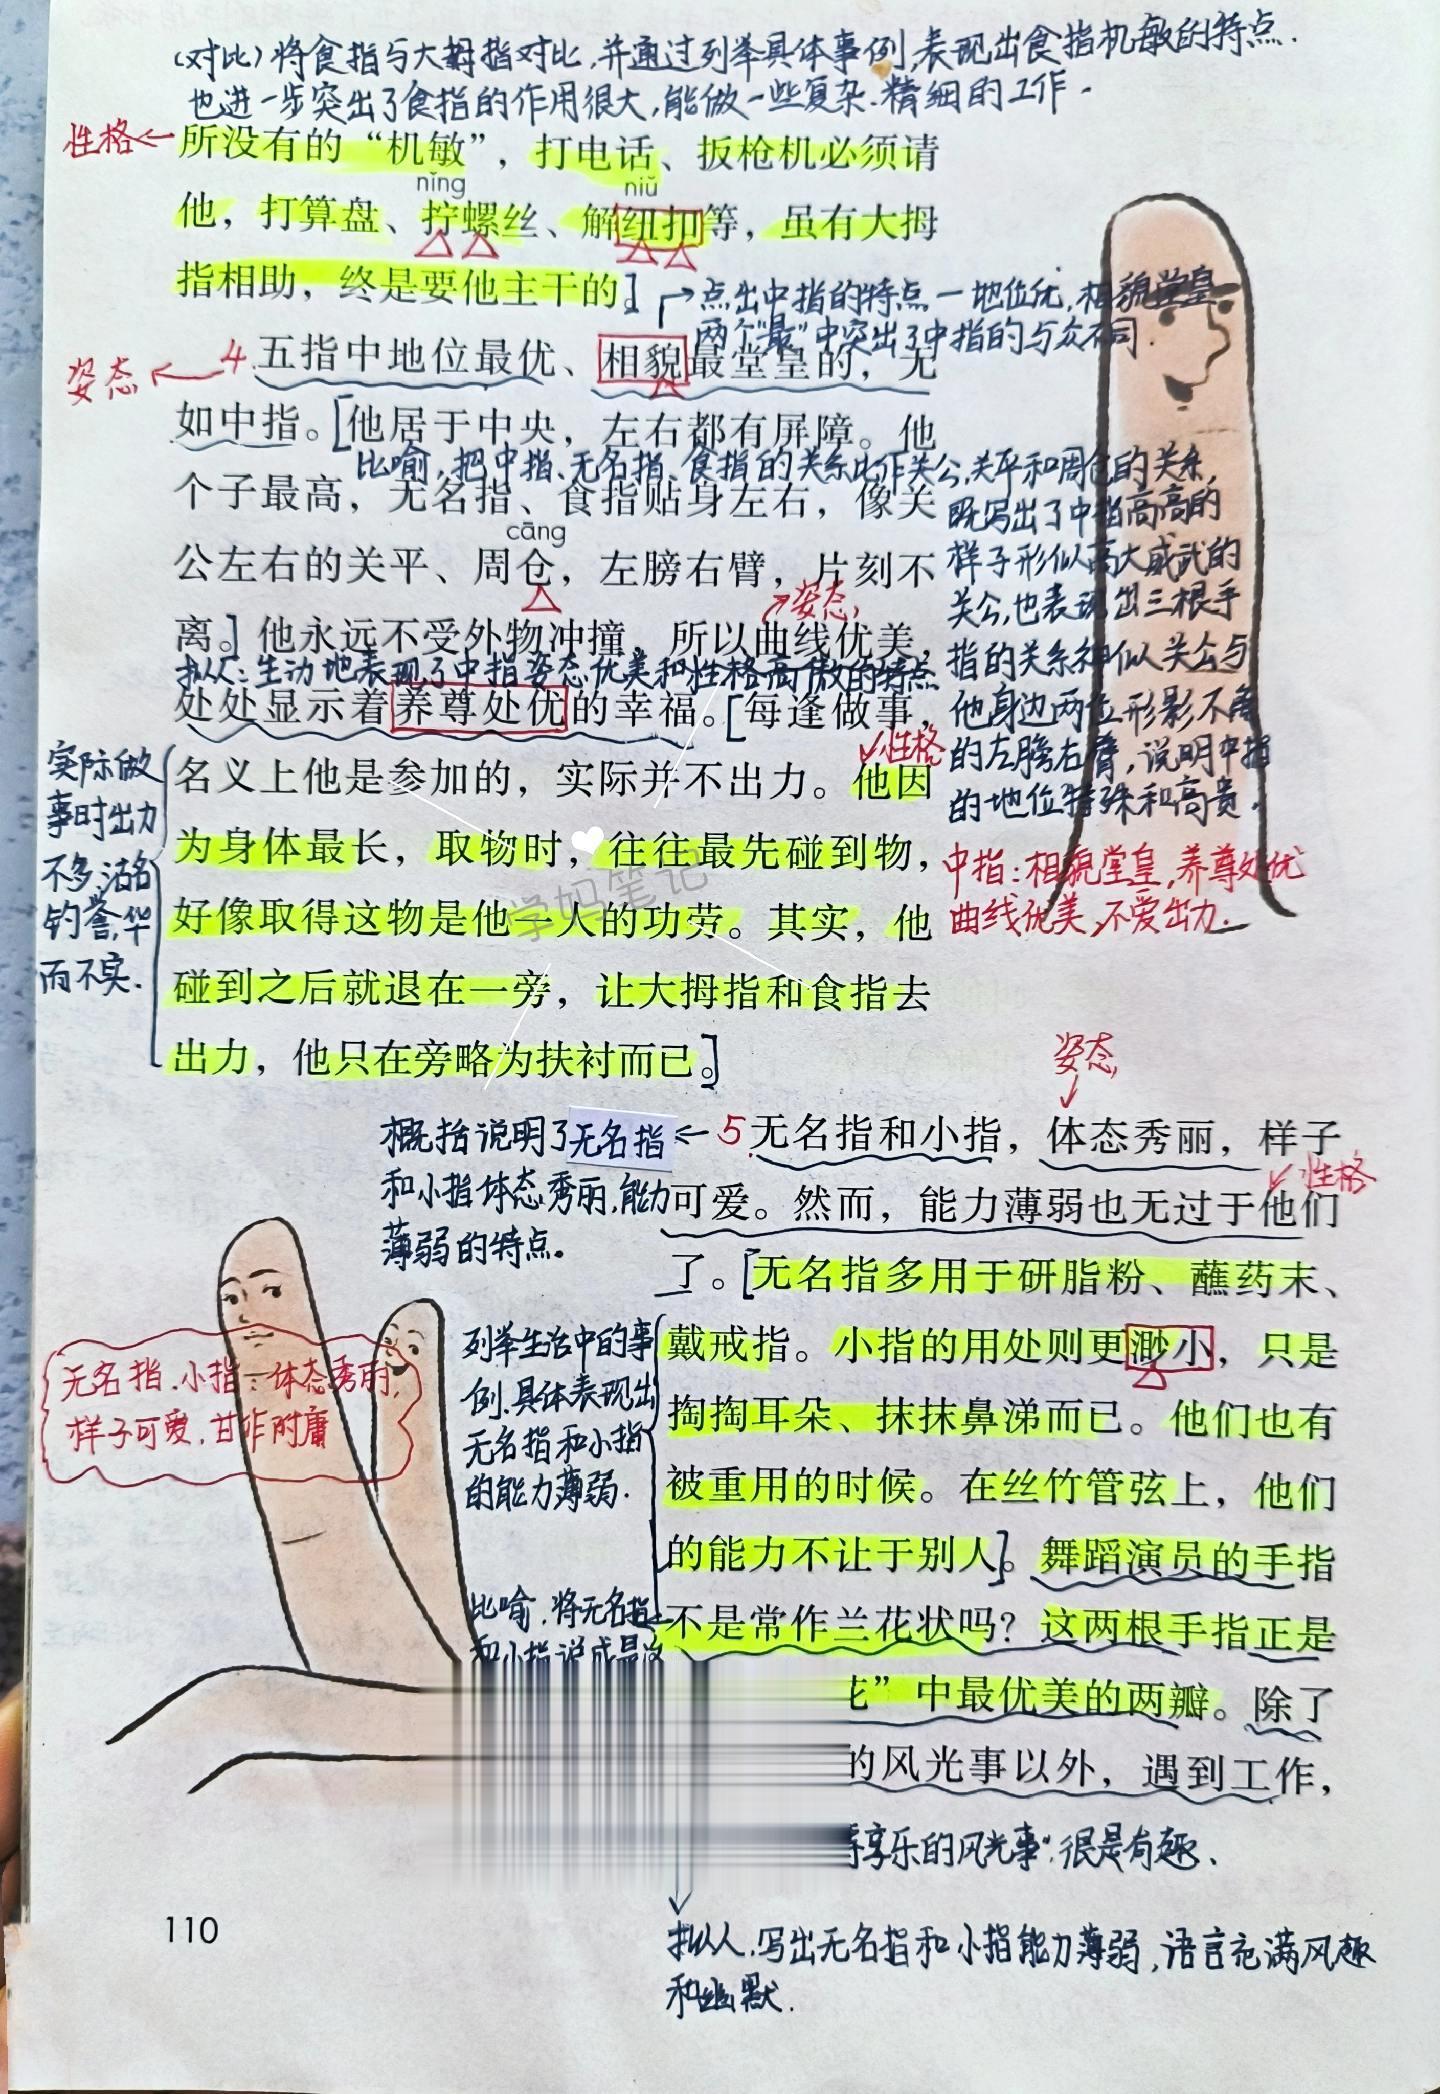 （对比）将食指与大拇指对比，并通过列举具体事例，表现出食指机敏的特点．
也进一步突出了食指的作用很大，能做一些复杂、精细的工作．
性格
所没有的“机敏”，打电话、扳枪机必须请
nǐng niǔ
他，打算盘、拧螺丝、解纽扣等，虽有大拇
指相助，终是要他主干的。]
点出中指的特点—地位优，相貌堂皇
两个“最”中突出了中指的与众不同．
姿态
4.五指中地位最优、相貌最堂皇的，无
如中指。[他居于中央，左右都有屏障。他
比喻，把中指、无名指、食指的关系比作关公、关平和周仓的关系，
个子最高，无名指、食指贴身左右，像关
cāng
公左右的关平、周仓，左膀右臂，片刻不
姿态
离。]他永远不受外物冲撞，所以曲线优美，
拟人：生动地表现了中指姿态优美和性格高傲的特点
处处显示着养尊处优的幸福。[每逢做事，
性格
名义上他是参加的，实际并不出力。他因
为身体最长，取物时，往往最先碰到物，
好像取得这物是他一人的功劳。其实，他
碰到之后就退在一旁，让大拇指和食指去
出力，他只在旁略为扶衬而已。]
既写出了中指高高的
样子形似高大威武的
关公，也表现出三根手
指的关系神似关公与
他身边两位形影不离
的左膀右臂，说明中指
的地位特殊和高贵．
中指：相貌堂皇，养尊处优
曲线优美，不爱出力．
实际做
事时出力
不多，沽名
钓誉，华
而不实．
学妈笔记
姿态
概括说明了无名指
和小指体态秀丽，能力
薄弱的特点。
5.无名指和小指，体态秀丽，样子
性格
可爱。然而，能力薄弱也无过于他们
了。[无名指多用于研脂粉、蘸药末、
戴戒指。小指的用处则更渺小，只是
掏掏耳朵、抹抹鼻涕而已。他们也有
被重用的时候。在丝竹管弦上，他们
的能力不让于别人]。舞蹈演员的手指
不是常作兰花状吗？这两根手指正是
”中最优美的两瓣。除了
的风光事以外，遇到工作，
列举生活中的事
例，具体表现出
无名指和小指
的能力薄弱．
无名指、小指：体态秀丽，
样子可爱，甘作附庸
比喻，将无名指
和小指说成是
享乐的风光事”，很是有趣．
110
拟人，写出无名指和小指能力薄弱，语言充满风趣
和幽默．